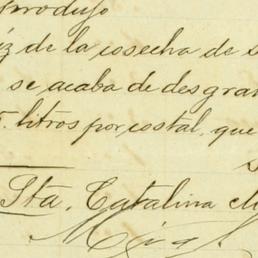 produjo
iz de la cosecha de s
se acaba de desgran
5. litros por costal, que
Sta. Catalina M